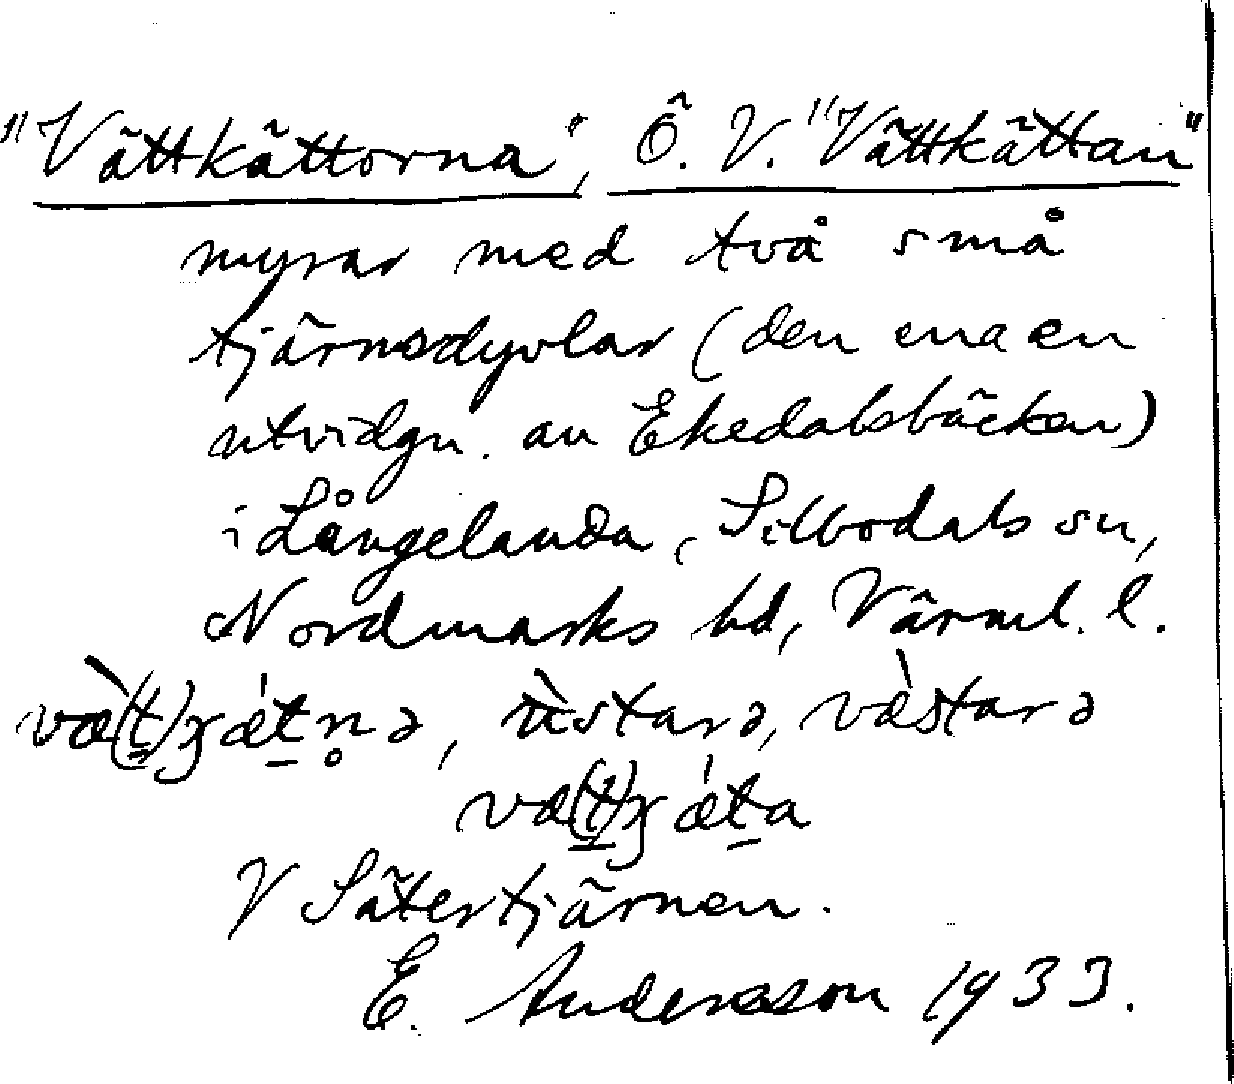 "Vättkättorna", Ö. V. "Vättkättan"
myrar med två små
tjärnsdyvlar (den ena en
utvidgn. av Ekedalsbäcken)
i Långelanda, Silbodals sn,
Nordmarks hd, Värml. l.
væ̀(t)ʒǽt̠n̥ə, ùstarə, væ̀starə
væ(t)ʒǽt̠a
V Sätertjärnen.
E. Andersson 1933.